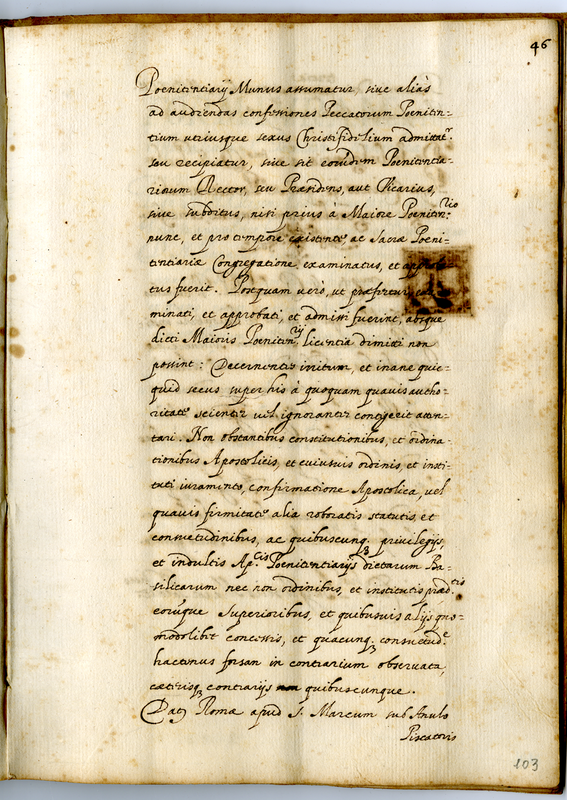 46
Poenitentiarij Munus assumatur, siue aliàs
ad audiendas confessiones Peccatorum Poeniten=
tium utriusque sexus Christifidelium admittat.r
seu recipiatur, siue sit eorumdem Poenitentia-
riorum Rector, seu Praesidens, aut Vicarius,
siue subditus, nisi prius à Maiore Poeniten:rio
nunc, et pro tempore existente, ac Sacrae Poeni-
tentiariae Congregatione, examinatus, et approba
tus fuerit. Postquam verò, ut praefertur,
minati, et approbati, et admissi fuerint, absque
dicti Maioris Poeniten:rij licentia dimitti non
possint: Decernentes irritum, et inane quic-
quid secus super his à quoquam quauis autho-
ritate scienter uel ignoranter contigerit atten-
tari. Non obstantibus constitutionibus, et ordina-
tionibus Apostolicis, et cuiusuis ordinis, et insti-
tuti iuramento, confirmatione Apostolica, uel
quauis firmitate alia roboratis statutis, et
consuetudinibus, ac quibuscunq3 priuilegijs,
et indultis Ap.cis Poenitentiarijs dictarum Ba-
silicarum nec non ordinibus, et institutis praed.ctis
eorumque Superioribus, et quibusuis alijs quo-
modolibet concessis, et quacunq3 consuetud.e
hactenus forsan in contrarium obseruata,
caeterisq3 contrarijs non quibuscunque.
Dat3 Romae apud S. Marcum sub Anulo
Piscatoris
103